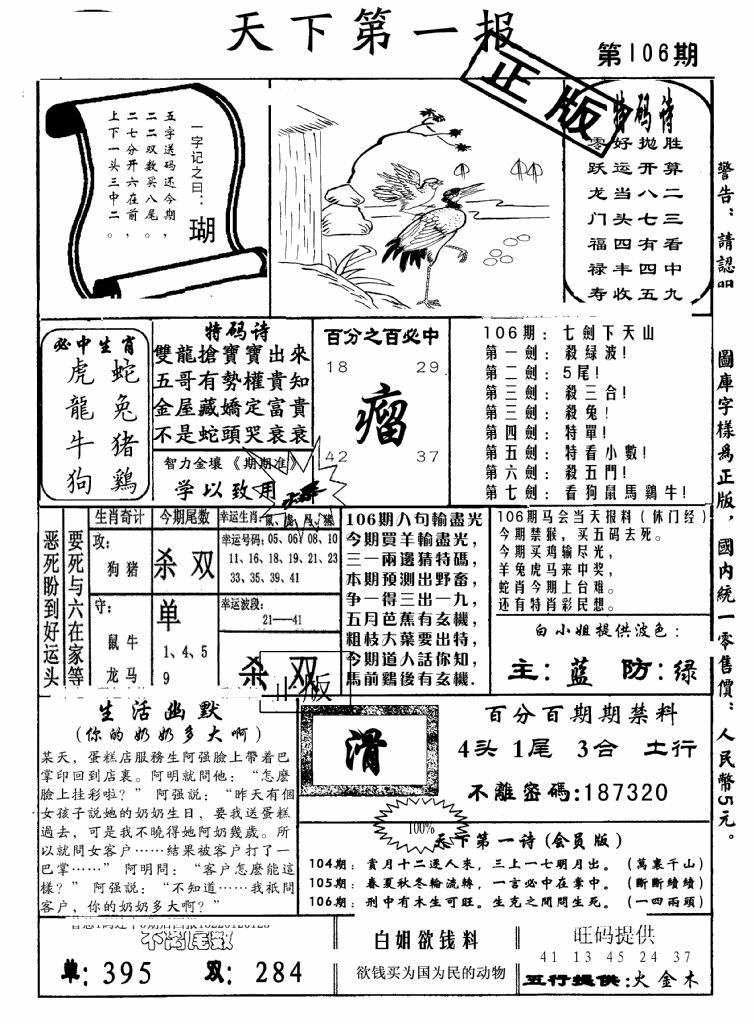 天下第一报
第106期
正版
一字记之曰：
瑚
五字送码还今期，
二二双数买八尾。
二七分开六在前，
上下一头三中二。
特码诗
零好抛胜
跃运开算
龙当八二
门头七三
福四有看
禄丰四中
寿收五九
警告：請認明
圖庫字樣為正版，國内統一零售價：人民幣5元。
必中生肖
虎 蛇
龍 兔
牛 猪
狗 鷄
特码诗
雙龍搶寶寶出來
五哥有勢權貴知
金屋藏嬌定富貴
不是蛇頭哭衰衰
智力金壤《期期准》
学以致用
百分之百必中
18 29
瘤
42 37
106期：七劍下天山
第一劍：殺绿波！
第二劍：5尾！
第三劍：殺三合！
第三劍：殺兔！
第四劍：特單！
第五劍：特看小數！
第六劍：殺五門！
第七劍：看狗鼠馬鷄牛！
恶死盼到好运头
要死与六在家等
生肖奇计 今期尾数
攻：
狗 猪
杀双
守：
鼠牛
龙马
单
1、4、5
9
幸运生肖：
幸运号码：05、06、08、10
11、16、18、19、21、23
33、35、39、41
幸运波段：
21——41
杀双
正版
106期八句輸盡光
今期買羊輸盡光，
三一兩邊猜特碼，
本期預測出野畜，
争一得三出一九，
五月芭蕉有玄機，
粗枝大葉要出特，
今期道人話你知，
馬前鷄後有玄機.
106期马会当天报料（休门经）
今期禁猴，买五码去死。
今期买鸡输尽光，
羊兔虎马来中奖，
蛇肖今期上台难。
还有特肖彩民想。
白小姐提供波色：
主：蓝 防：绿
生活幽默
(你的奶奶多大啊)
某天，蛋糕店服務生阿强臉上帶着巴
掌印回到店裏。阿明就問他：“怎麽
臉上挂彩啦？” 阿强説：“昨天有個
女孩子説她的奶奶生日，要我送蛋糕
過去，可是我不曉得她阿奶幾歲。所
以就問女客户……結果被客户打了一
巴掌……” 阿明問：“客户怎麽能這
樣？” 阿强説：“不知道……我祇問
客户，你的奶奶多大啊？”
滑
百分百期期禁料
4头 1尾 3合 土行
不離密碼:187320
100%
天下第一诗(会员版)
104期：賞月十二逐人來，三上一七明月出。（萬裏千山）
105期：春夏秋冬輪流轉，一言必中在掌中。（斷斷續續）
106期：刑中有木生可旺。生克之間問生死。（一四兩頭）
不离尾数
单：395 双：284
白姐欲钱料
欲钱买为国为民的动物
旺码提供
41 13 45 24 37
五行提供：火金木